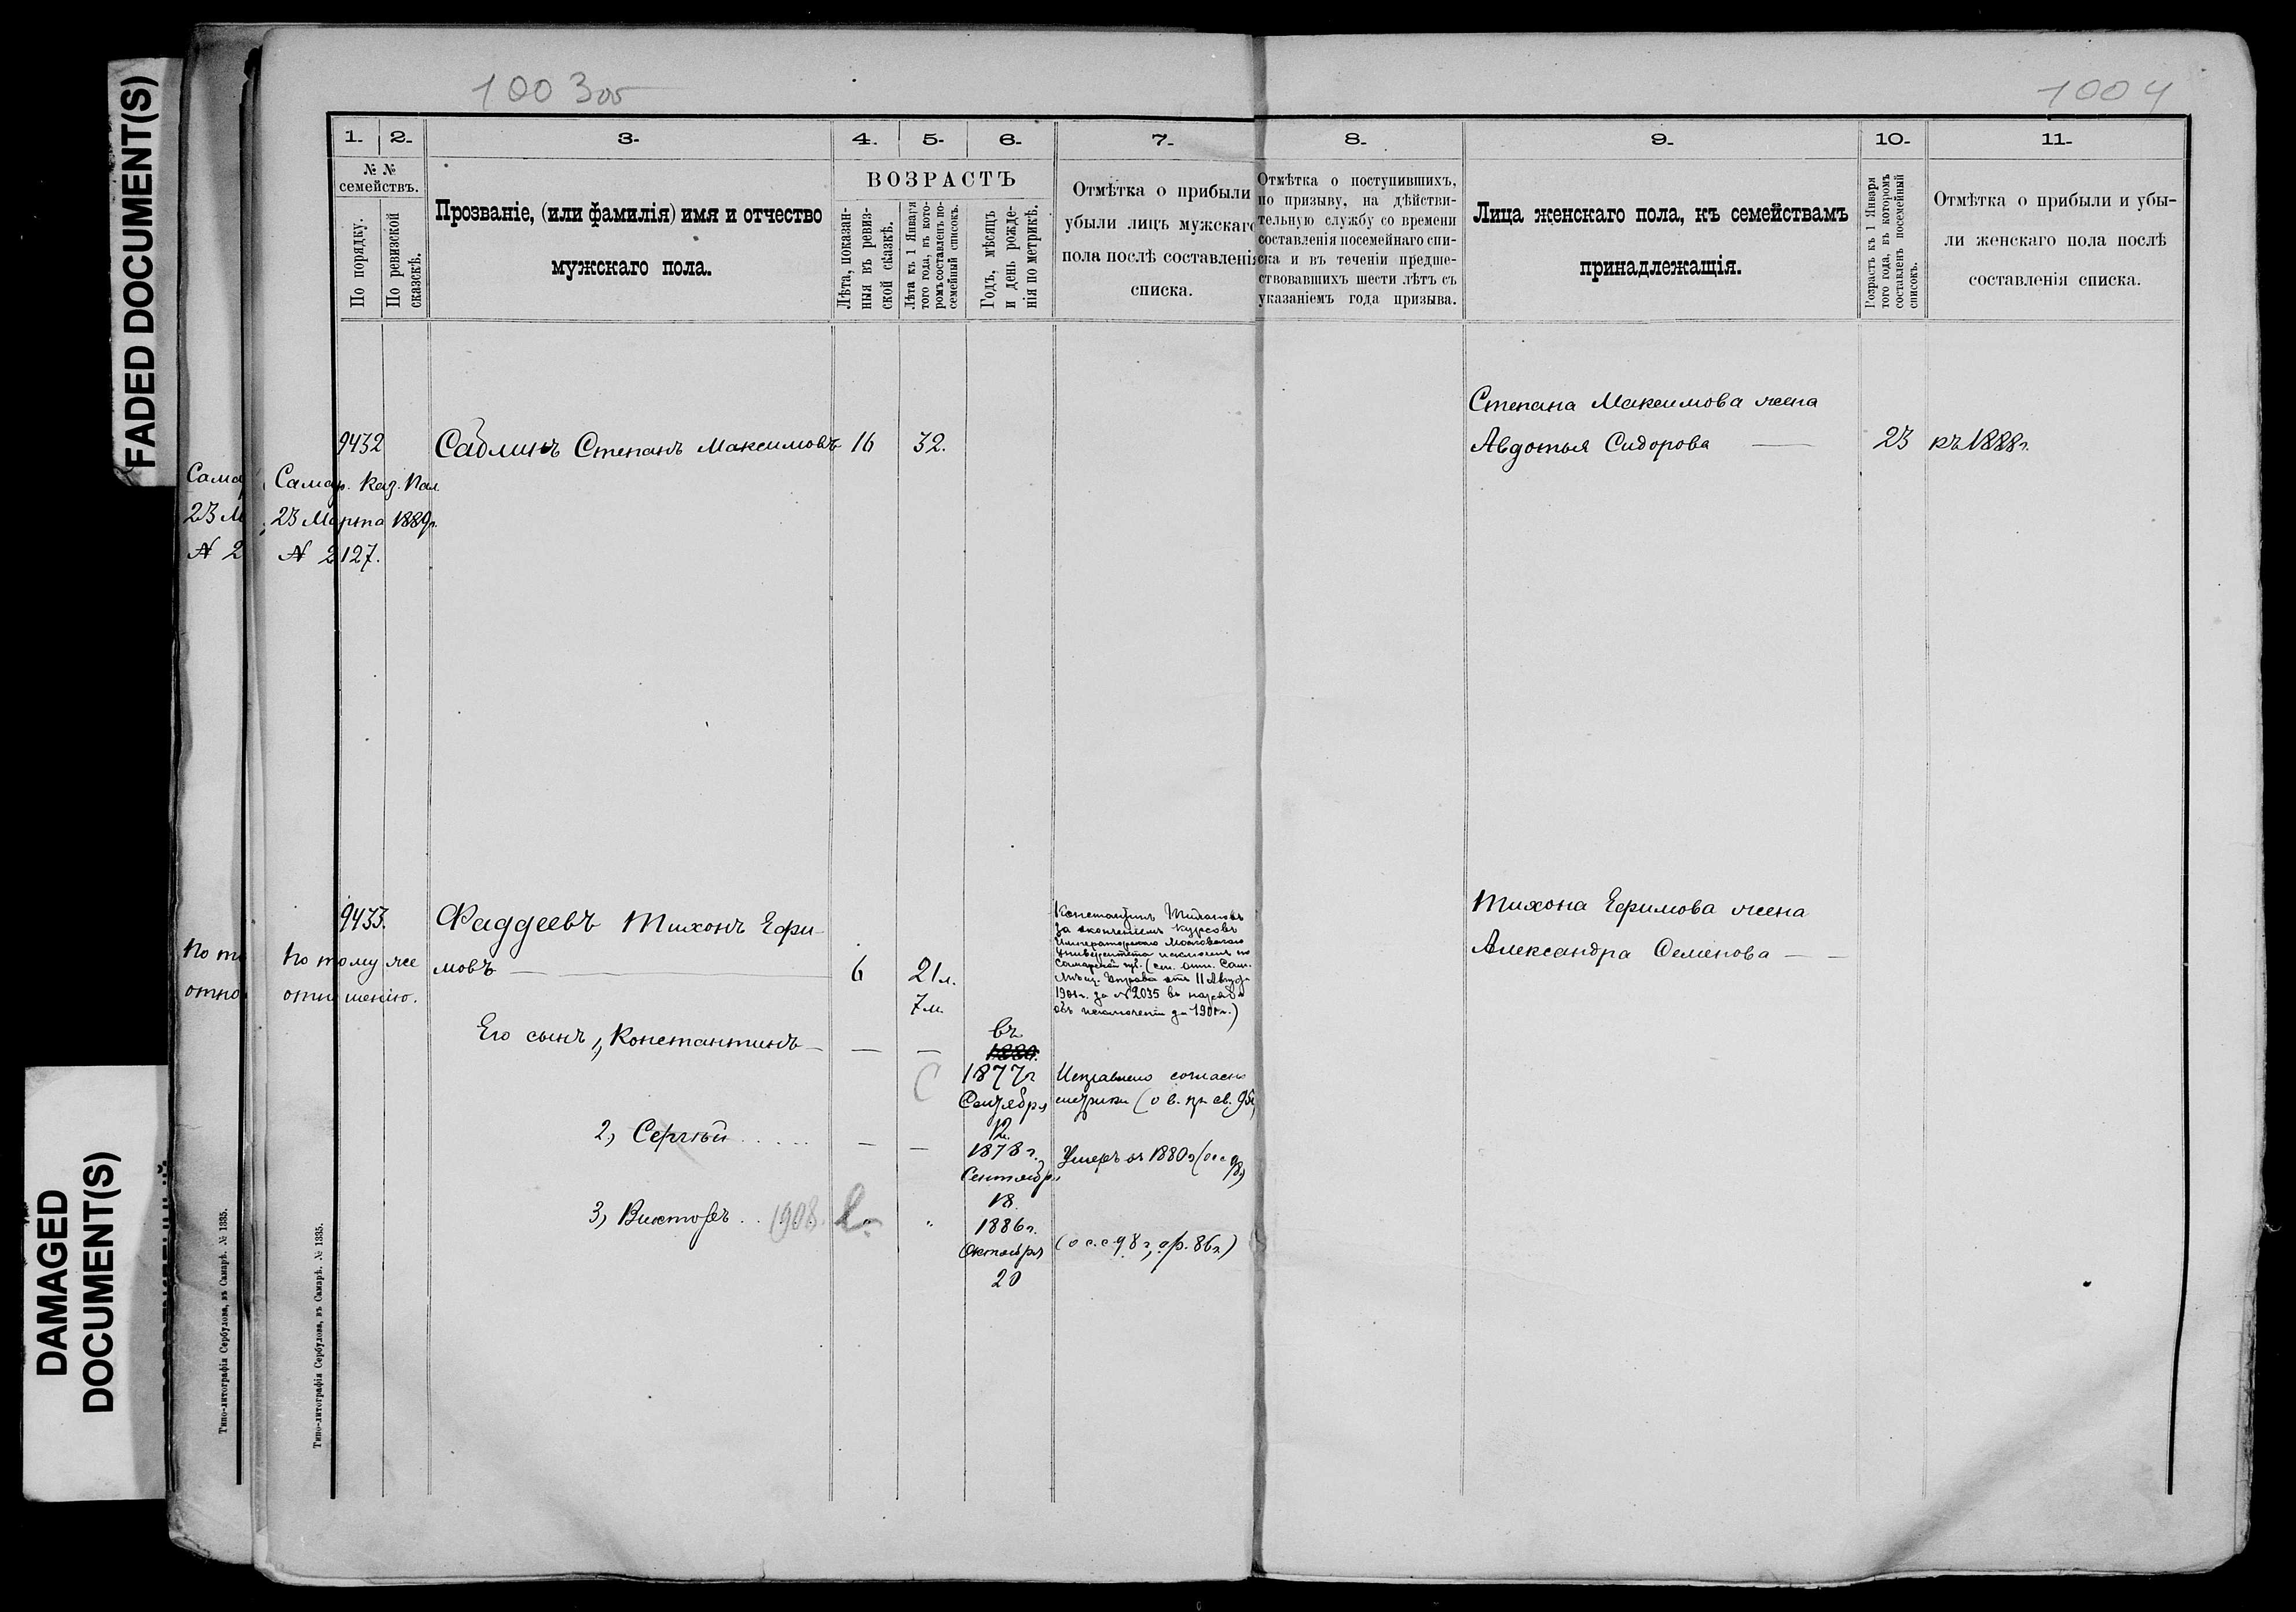 FADED DOCUMENT(S)
DAMAGED
DOCUMENT(S)
1003 об
1004
1. 2. 3. 4. 5. 6. 7. 8. 9. 10. 11.
№ №
семействъ.
По порядку.
По ревизской
сказскѣ.
Прозваніе, (или фамилія) имя и отчество
мужскаго пола.
ВОЗРАСТЪ
Лѣта, показан-
ныя въ ревиз-
ской сказкѣ.
Лѣта къ 1 Января
того года, въ кото-
ромъ составленъ по-
семейный списокъ.
Годъ, мѣсяцъ
и день рожде-
нія по метрикѣ.
Отмѣтка о прибыли
убыли лицъ мужскаго
пола послѣ составленія
списка.
Отмѣтка о поступившихъ,
по призыву, на дѣйстви-
тельную службу со времени
составленія посемейнаго спи-
ска и въ теченіи предше-
ствовавшихъ шести лѣтъ съ
указаніемъ года призыва.
Лица женскаго пола, къ семействамъ
принадлежащія.
Возрастъ къ 1 Января
того года, въ которомъ
составленъ посемейный
списокъ.
Отмѣтка о прибыли и убы-
ли женскаго пола послѣ
составленія списка.
Степана Максимова жена
9432 Садлинъ Степанъ Максимовъ 16 32.
Авдотья Сидорова — 23 къ 1888 г.
Сама
23 М
№ 2
Самар. Каз. Пал.
23 Марта 1889 г.
№ 2127.
9433. Фаддеевъ Тихонъ Ефи-
мовъ — 6 21 л.
7 м.
По то
отно
По тому же
отношенію.
Константинъ Тихоновъ
за окончаніемъ курсовъ
Императорскаго Московскаго
Университета исключенъ по
Самарской
Управы отъ 11
1901 г. за № 2035 въ
объ исключеніи 1901 г.)
Тихона Ефимова жена
Александра Семенова — —
Его сынъ 1, Константинъ — — —
въ
1880.
1877 г
Сентября
12
Исправлено согласно
метрики
2, Сергѣй . . . . . — —
1878 г.
Сентября
18
Умеръ въ 1880 г
3, Викторъ . . 1908.
1886 г.
Октября
20
Типо-литографія Сербулова, въ Самарѣ. № 1335.
Типо-литографія Сербулова, въ Самарѣ. № 1335.